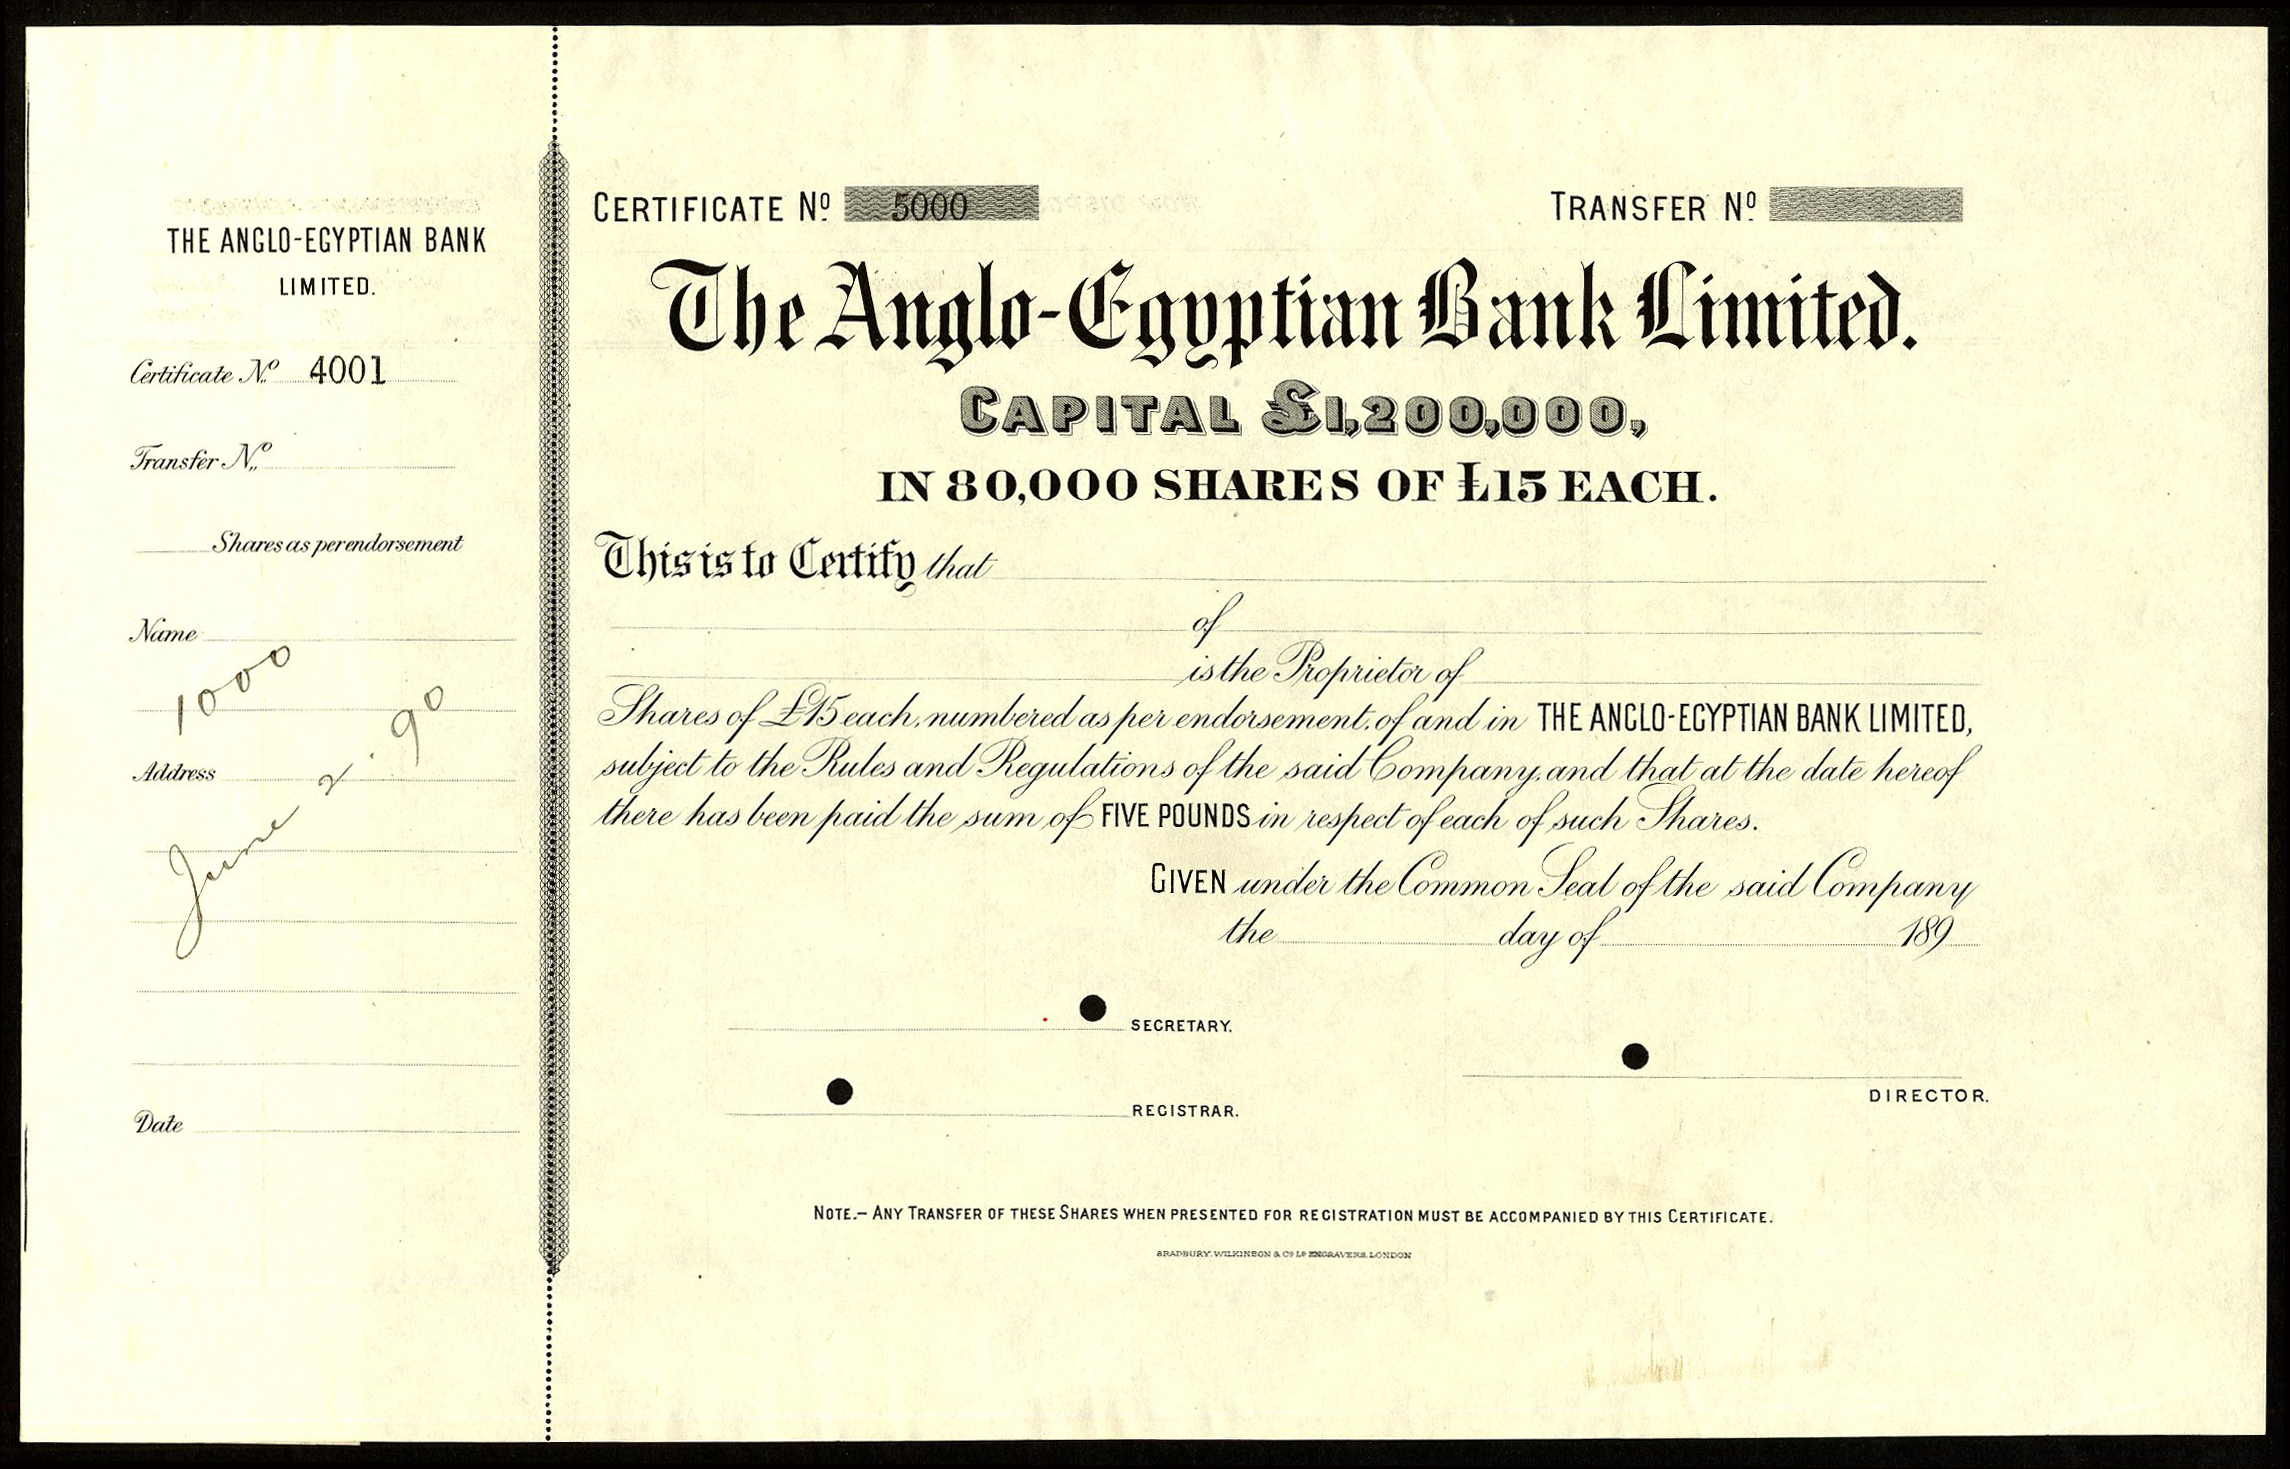 THE ANGLO-EGYPTIAN BANK
LIMITED.
Certificate No. 4001
Transfer No.
Shares as per endorsement
Name
1000
Address
June 2. 90
Date
CERTIFICATE No. 5000
TRANSFER No.
The Anglo-Egyptian Bank Limited.
CAPITAL £1,200,000,
IN 80,000 SHARES OF £15 EACH.
This is to Certify that
of
is the Proprietor of
Shares of £15 each, numbered as per endorsement, of and in THE ANGLO-EGYPTIAN BANK LIMITED,
subject to the Rules and Regulations of the said Company, and that at the date hereof
there has been paid the sum of FIVE POUNDS in respect of each of such Shares.
GIVEN under the Common Seal of the said Company
the day of 189
SECRETARY.
REGISTRAR.
DIRECTOR.
NOTE.– ANY TRANSFER OF THESE SHARES WHEN PRESENTED FOR REGISTRATION MUST BE ACCOMPANIED BY THIS CERTIFICATE.
BRADBURY, WILKINSON & Co. Ld. ENGRAVERS, LONDON